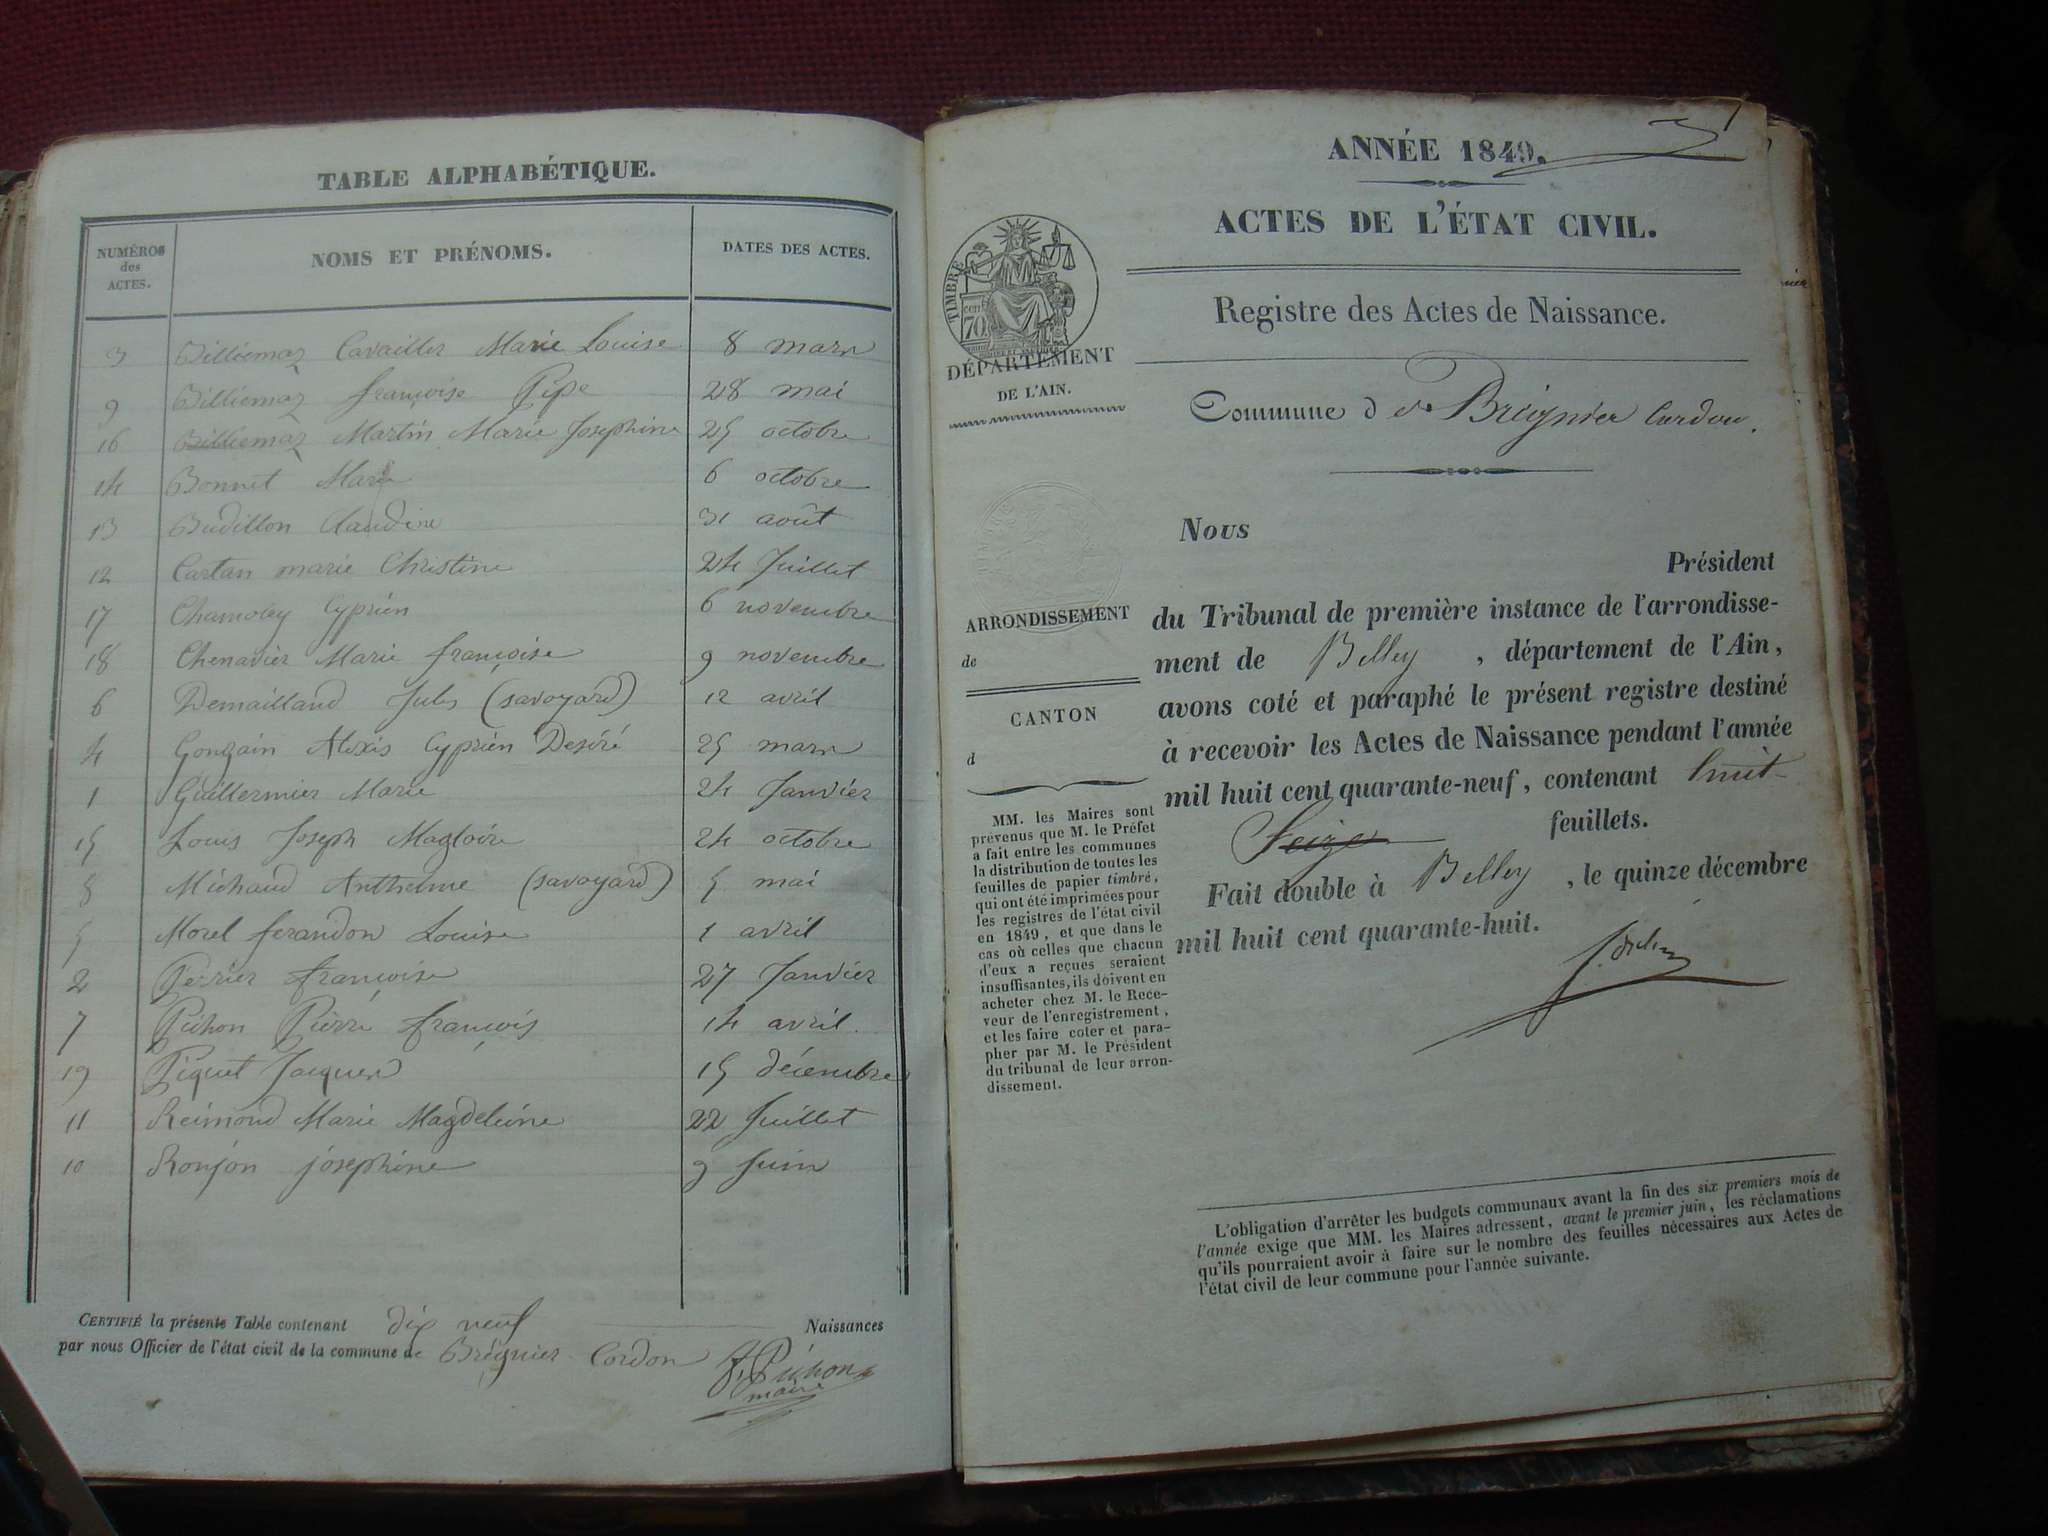 TABLE ALPHABÉTIQUE.
NUMÉROS des ACTES. NOMS ET PRÉNOMS. DATES DES ACTES.
3 Billiemaz Cavailler Marie Louise 8 mars
9 Billiemaz françoise Pipe 28 mai
16 Billiemaz Martin Marie Josephine 25 octobre
14 Bonnet Marie 6 octobre
13 Budillon Claudine 31 août
12 Cartan marie Christine 24 Juillet
17 Chamoley Cyprien 6 novembre
18 Chenavier Marie françoise 9 novembre
6 Demailland Jules (savoyard) 12 avril
4 Gonzain Alexis Cyprien Desiré 25 mars
1 Guillermier Marie 24 Janvier
15 Louis Joseph Magloire 24 octobre
8 Michaud Anthelme (savoyard) 5 mai
5 Morel ferandon Louise 1 avril
2 Perrier françoise 27 Janvier
7 Pichon Pierre françois 14 avril.
19 Piquet Jacques 15 décembre
11 Reimond Marie Magdeleine 22 Juillet
10 Ronjon josephine 9 Juin
CERTIFIÉ la présente Table contenant dix neuf Naissances
par nous Officier de l'état civil de la commune de Brégnier-Cordon
Pichon
maire
ANNÉE 1849.
ACTES DE L'ÉTAT CIVIL.
Registre des Actes de Naissance.
Commune d de Breignier Cordon.
TIMBRE
70
DÉPARTEMENT
DE L'AIN.
ARRONDISSEMENT
de
CANTON
d
MM. les Maires sont
prévenus que M. le Préfet
a fait entre les communes
la distribution de toutes les
feuilles de papier timbré,
qui ont été imprimées pour
les registres de l'état civil
en 1849, et que dans le
cas où celles que chacun
d'eux a reçues seraient
insuffisantes, ils doivent en
acheter chez M. le Rece-
veur de l'enregistrement,
et les faire coter et para-
pher par M. le Président
du tribunal de leur arron-
dissement.
Nous
Président
du Tribunal de première instance de l'arrondisse-
ment de Belley, département de l'Ain,
avons coté et paraphé le présent registre destiné
à recevoir les Actes de Naissance pendant l'année
mil huit cent quarante-neuf, contenant huit
Seize feuillets.
Fait double à Belley, le quinze décembre
mil huit cent quarante-huit.
L'obligation d'arrêter les budgets communaux avant la fin des six premiers mois de
l'année exige que MM. les Maires adressent, avant le premier juin, les réclamations
qu'ils pourraient avoir à faire sur le nombre des feuilles nécessaires aux Actes de
l'état civil de leur commune pour l'année suivante.